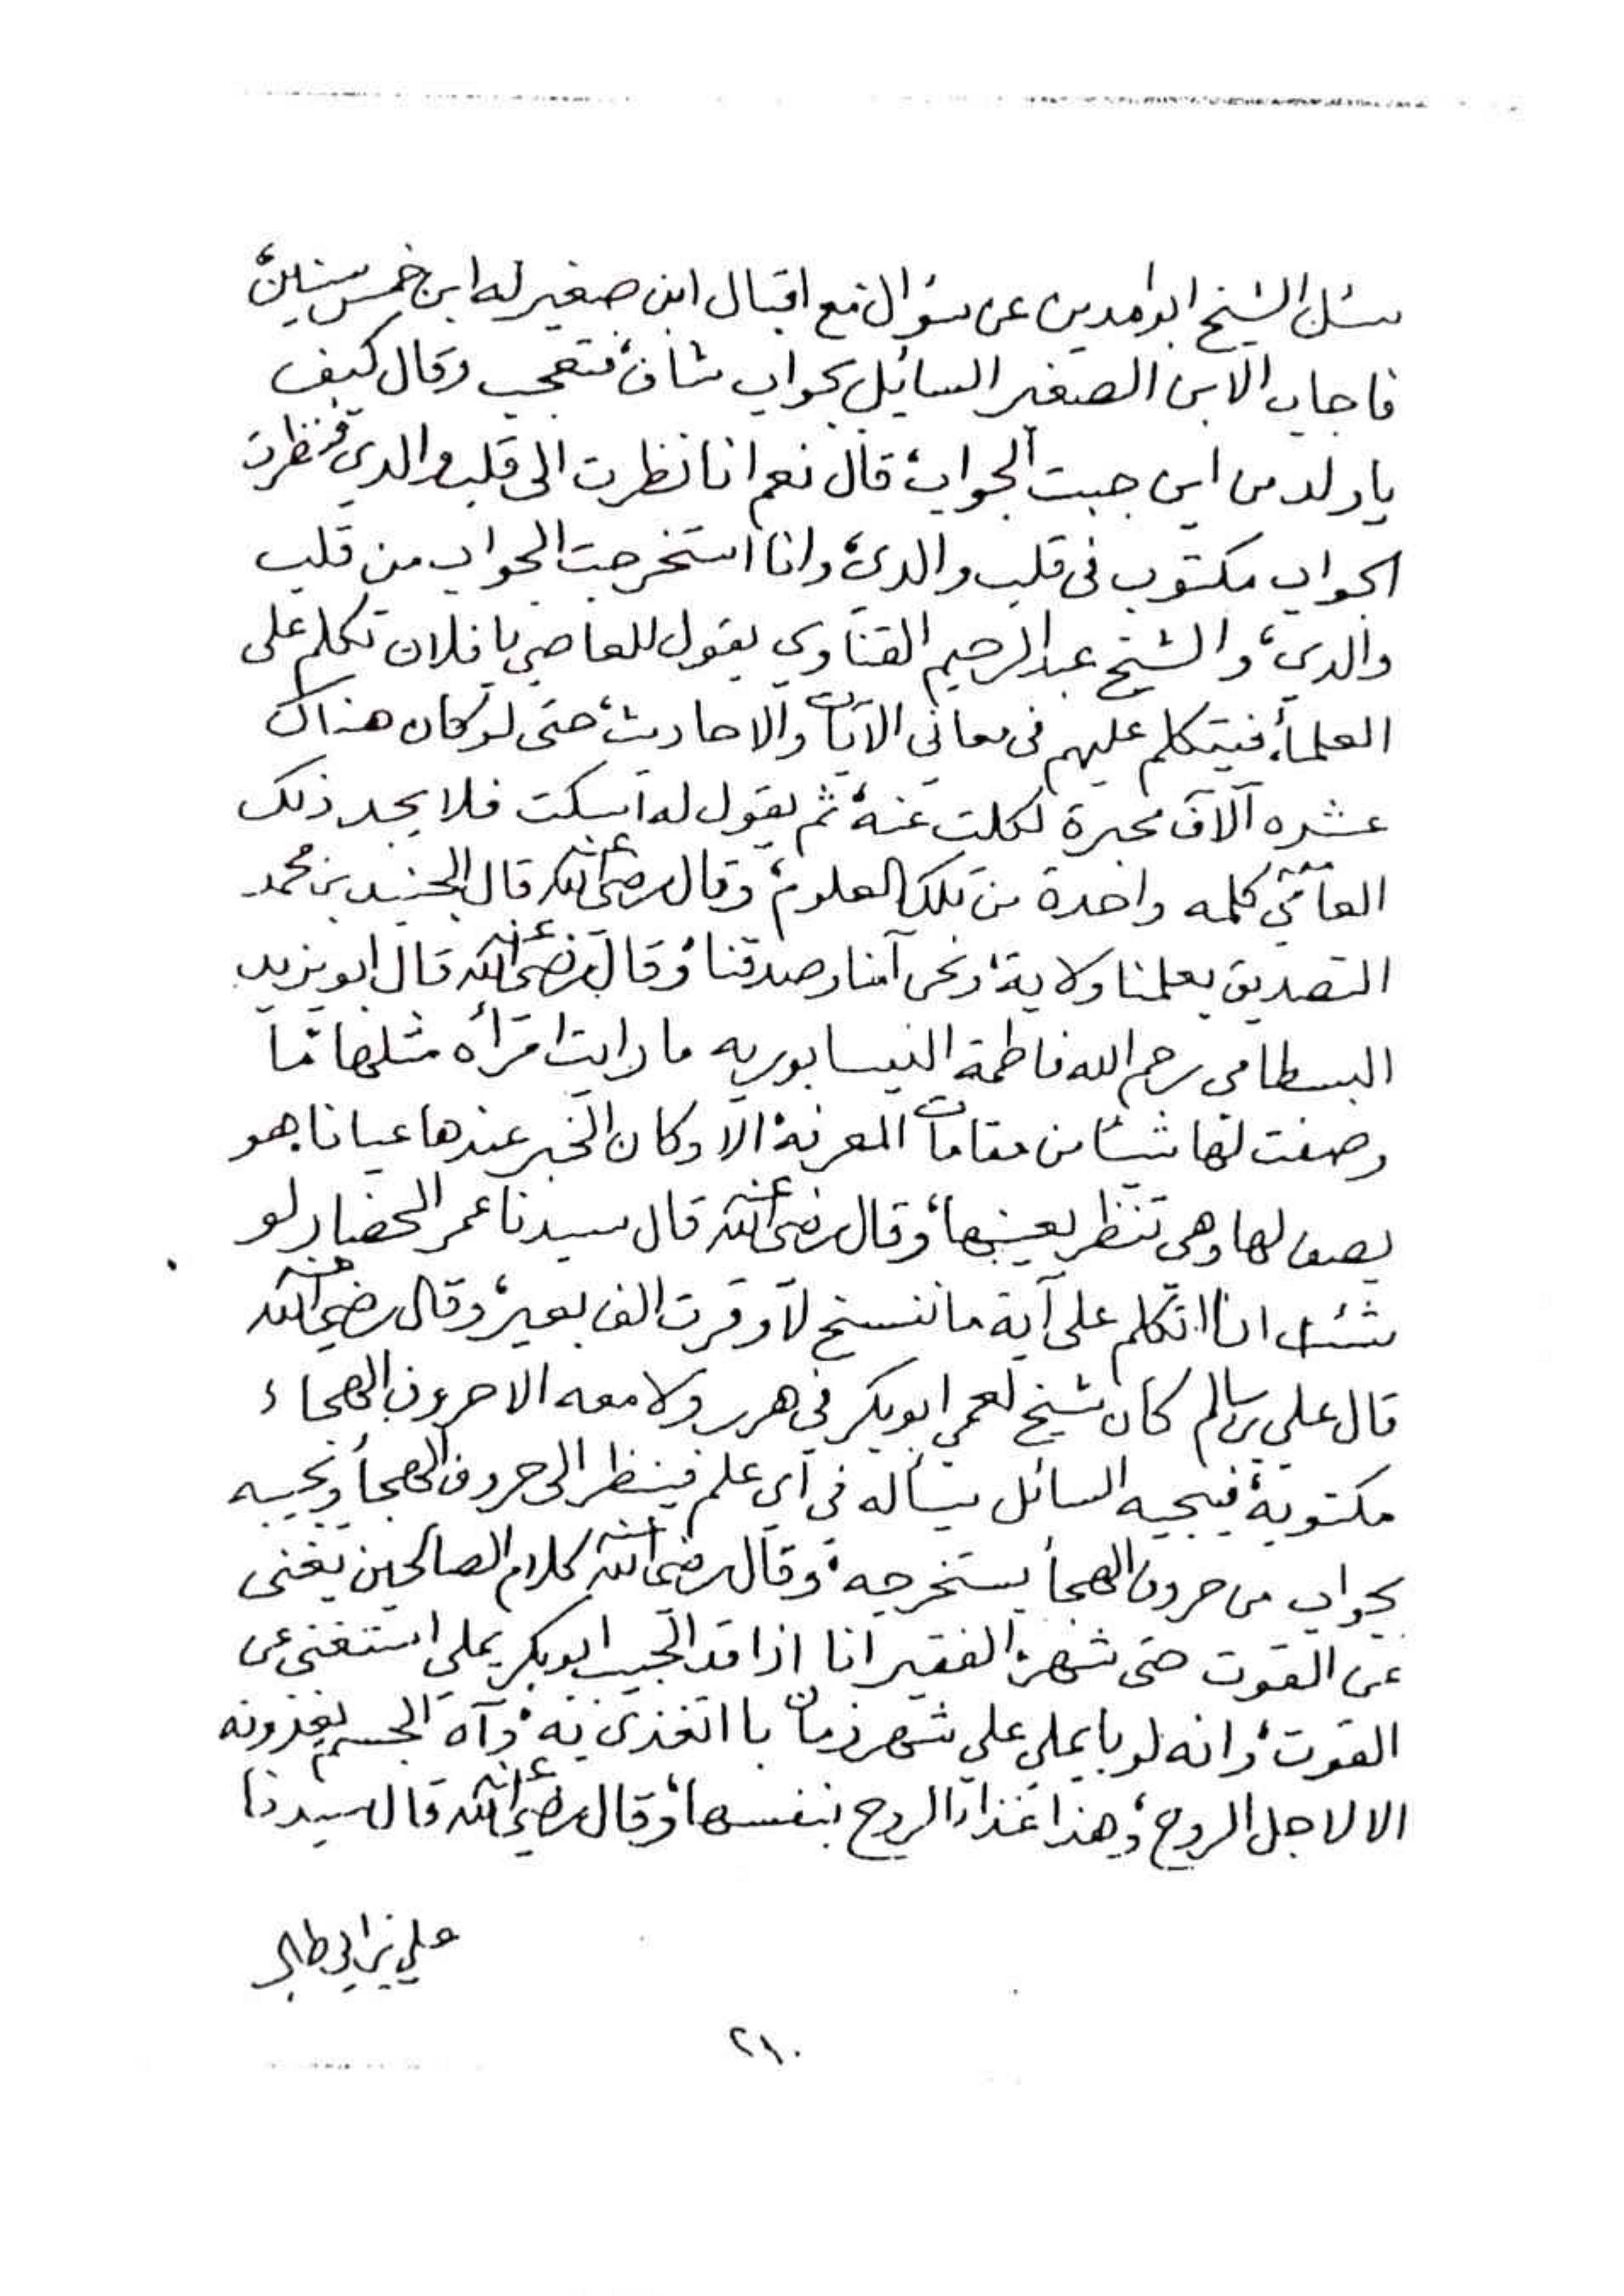 سئل الشيخ ابو مدين عن سؤال مع اقبال ابن صغير له ابن خمس سنين،
فاجاب الابن الصغير السايل بجواب شاف، فتعجب وقال كيف
يا ولد من اين جبت الجواب، قال نعم انا نظرت الى قلب والدي فنظرت
الجواب مكتوب في قلب والدي، وانا استخرجت الجواب من قلب
والدي، والشيخ عبد الرحيم القناوي يقول للعاصي يا فلان تكلم على
العلمأ، فيتكلم عليهم في معاني الآيات والاحاديث، حتى لو كان هناك
عشره آلآف محبرة لكلت عنه، ثم يقول له اسكت فلا يجد ذلك
العامّي كلمه واحدة من تلك العلوم، وقال رضي الله عنه قال الجنيد بن محمد
التصديق بعلمنا ولاية، ونحن آمنا وصدقنا، وقال رضي الله عنه قال ابو يزيد
البسطامي رحم الله فاطمة النيسابوريه ما رايت امرأه مثلها ما
وصفت لها شيئا من مقامات المعرفة، الا وكان الخبر عندها عيانا، هو
يصف لها وهي تنظر بعينها، وقال رضي الله عنه قال سيدنا عمر المحضار لو
شئت انا اتكلم على آية ما ننسخ لآوقرت الف بعير، وقال رضي الله عنه
قال علي بن سالم كان شيخ لعمي ابوبكر في هرر ولا معه الا حروف الهجاء
مكتوبة، فيجيه السائل يسأله في آي علم فينظر الى حروف الهجأ ويجيبه
بجواب من حروف الهجأ يستخرجه، وقال رضي الله عنه كلام الصالحين يغني
عن القوت حتى شهر، الفقير انا اذا قد الحبيب ابوبكر يملي استغني عن
القوت، وانه لو با يملي علي شهر زمان با اتغذى به، وآه الجسم يغذونه
الا لاجل الروح، وهذا غذاء الروح بنفسها، وقال رضي الله عنه قال سيدنا
علي بن ابي طالب
٢١٠